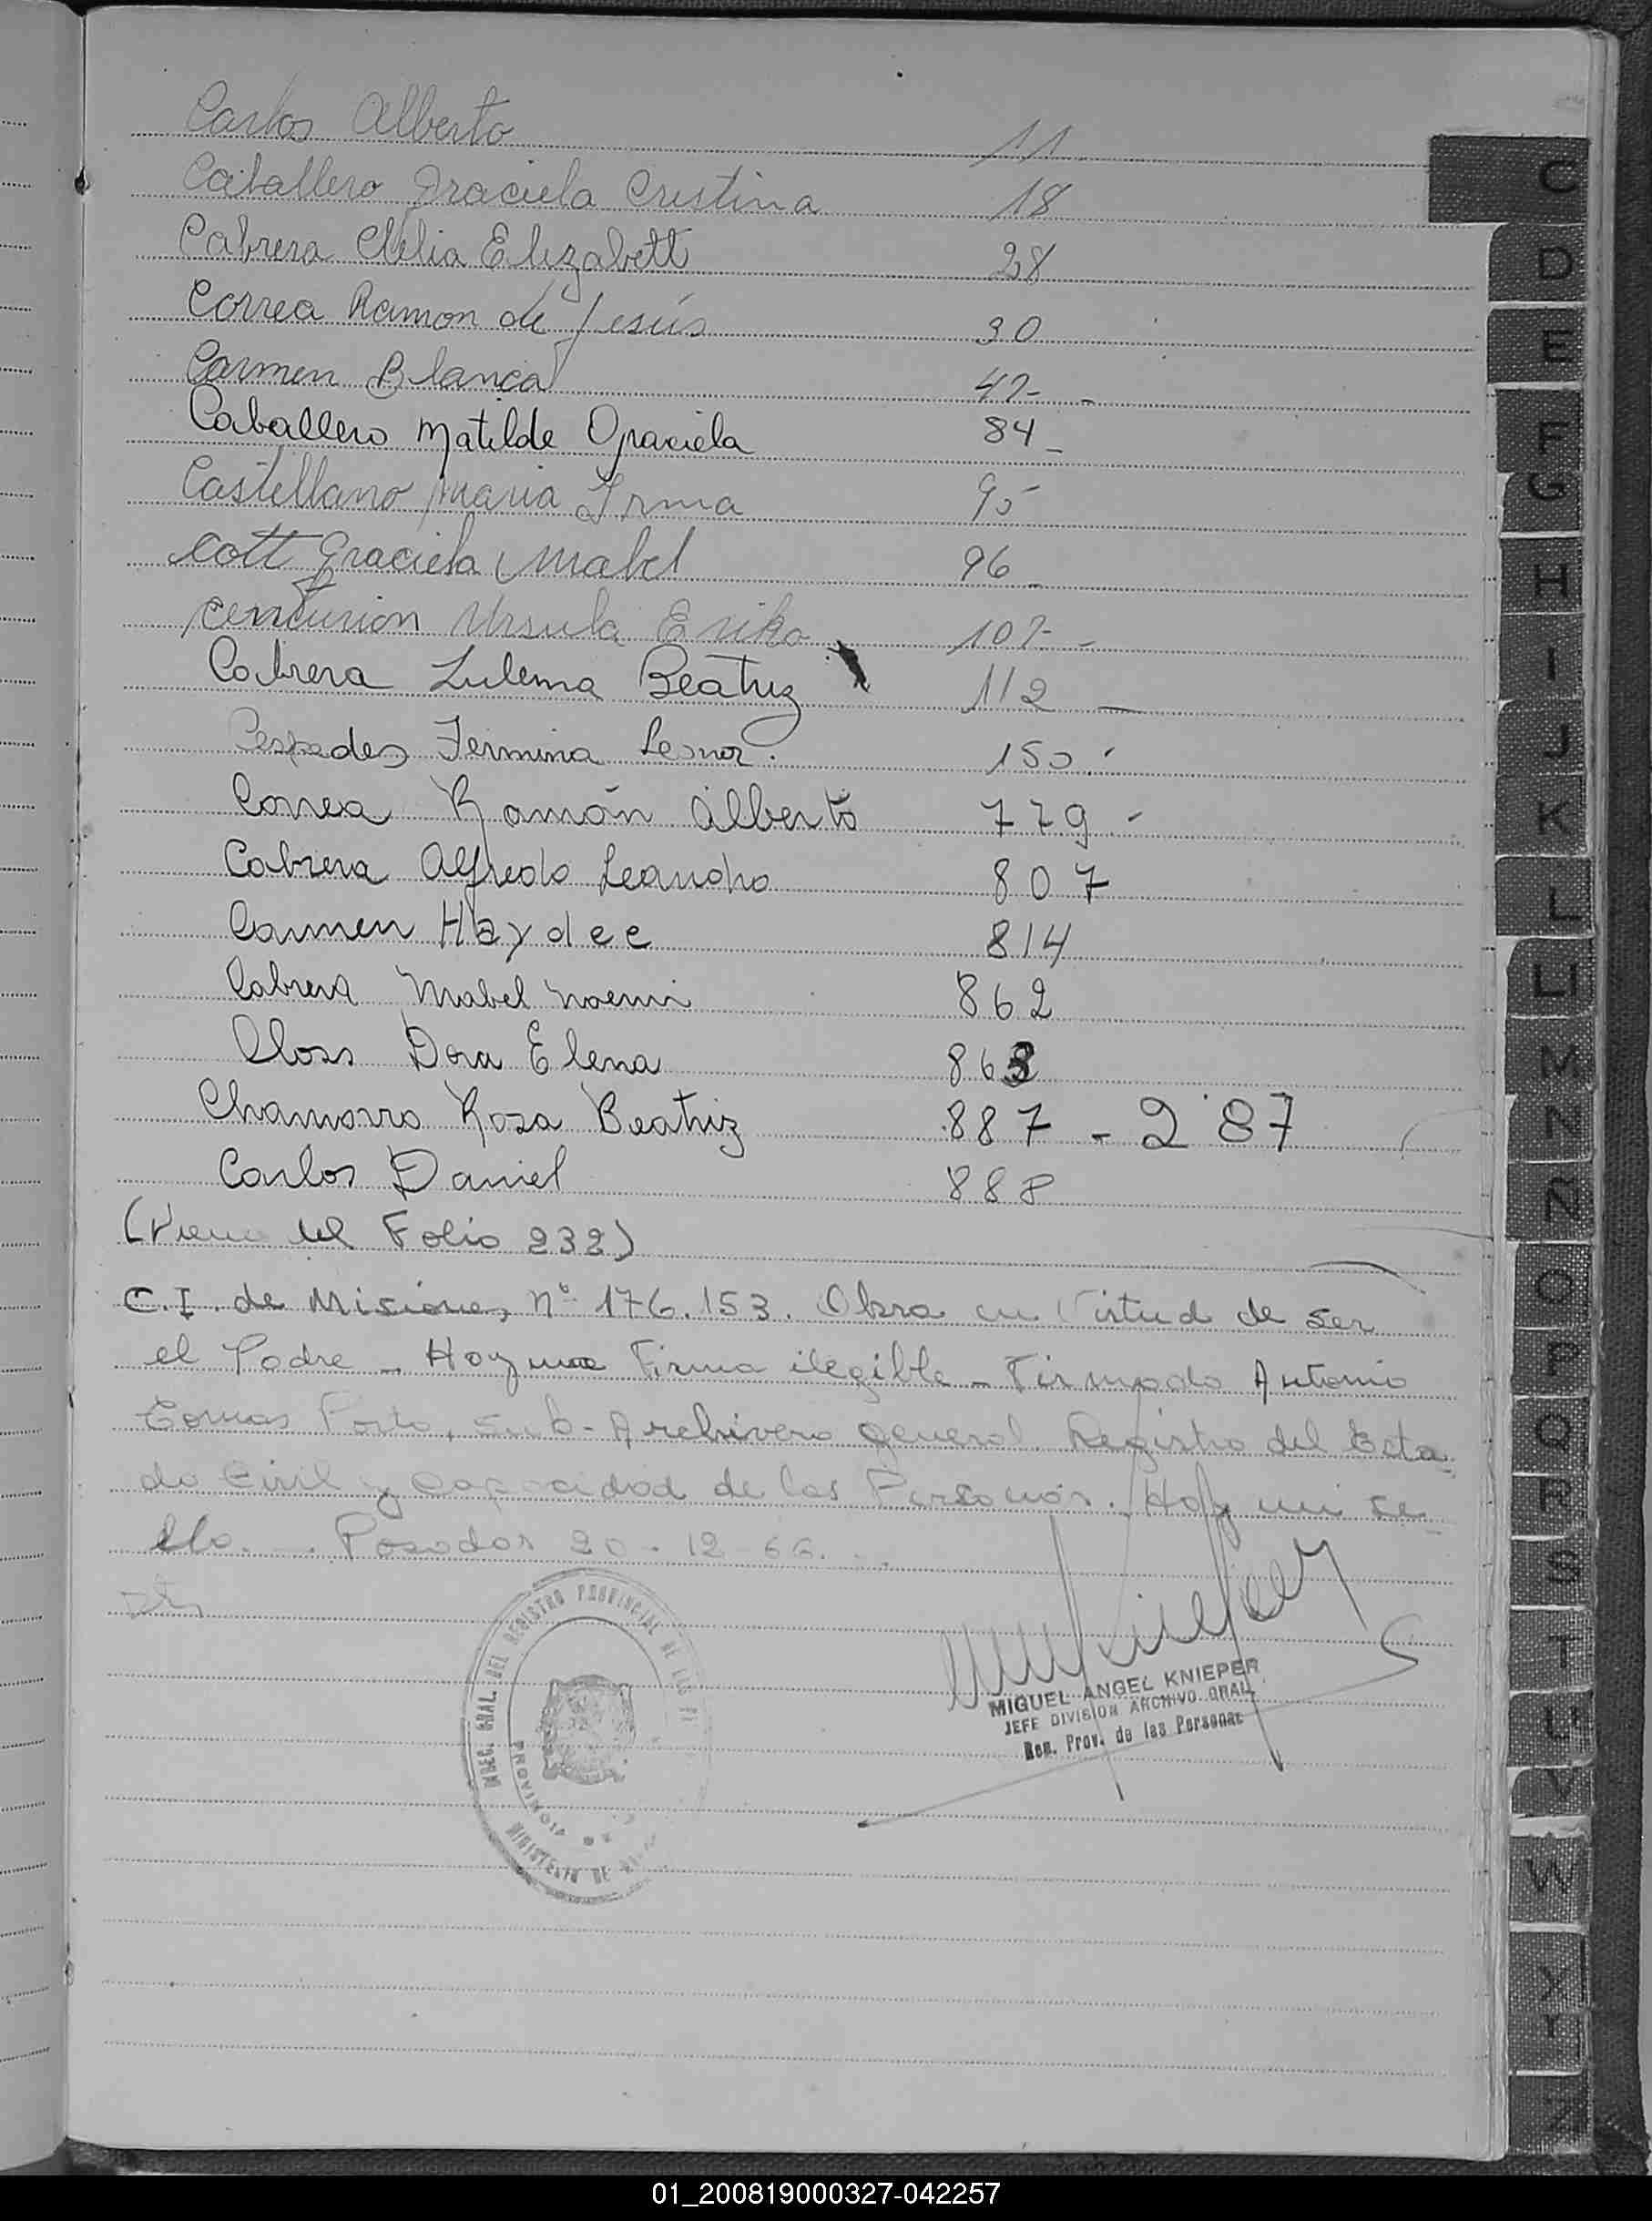 Carlos Alberto 11
Caballero Graciela Cristina 18
Cabrera Clelia Elizabett 28
Correa Ramon de Jesús 30
Carmen Blanca 47 -
Caballero Matilde Graciela 84 -
Castellano Maria Irma 95
Cott Graciela Mabel 96 -
Centurion Ursula Erika 107 -
Cabrera Zulema Beatriz 112 -
Cespedes Fermina Leonor. 150 -
Correa Ramón Alberto 779 -
Cabrera Alfredo Leandro 807
Carmen Haydee 814
Cabrera Mabel Noemi 862
Closs Dora Elena 863
Chamorro Rosa Beatriz 887 - 287
Carlos Daniel 888
(Viene del Folio 232)
C.I. de Misiones nº 176.153. Obra en Virtud de ser
el Padre - Hay una Firma ilegible - Firmado Antonio
Porto, Sub-Archivero general. Registro del Esta-
do Civil y Capacidad de las Personas. Hay un se-
llo. - Posadas 20-12-66.
MIGUEL ANGEL KNIEPER
JEFE DIVISION ARCHIVO GRAL.
Reg. Prov. de las Personas
DIREC. GRAL. DEL REGISTRO PROVINCIAL DE LAS
PROVINCIA
MINISTERIO DE
C
D
E
F
G
H
I
J
K
L
LL
M
N
Ñ
O
P
Q
R
S
T
U
V
W
X
Y
Z
01_200819000327-042257